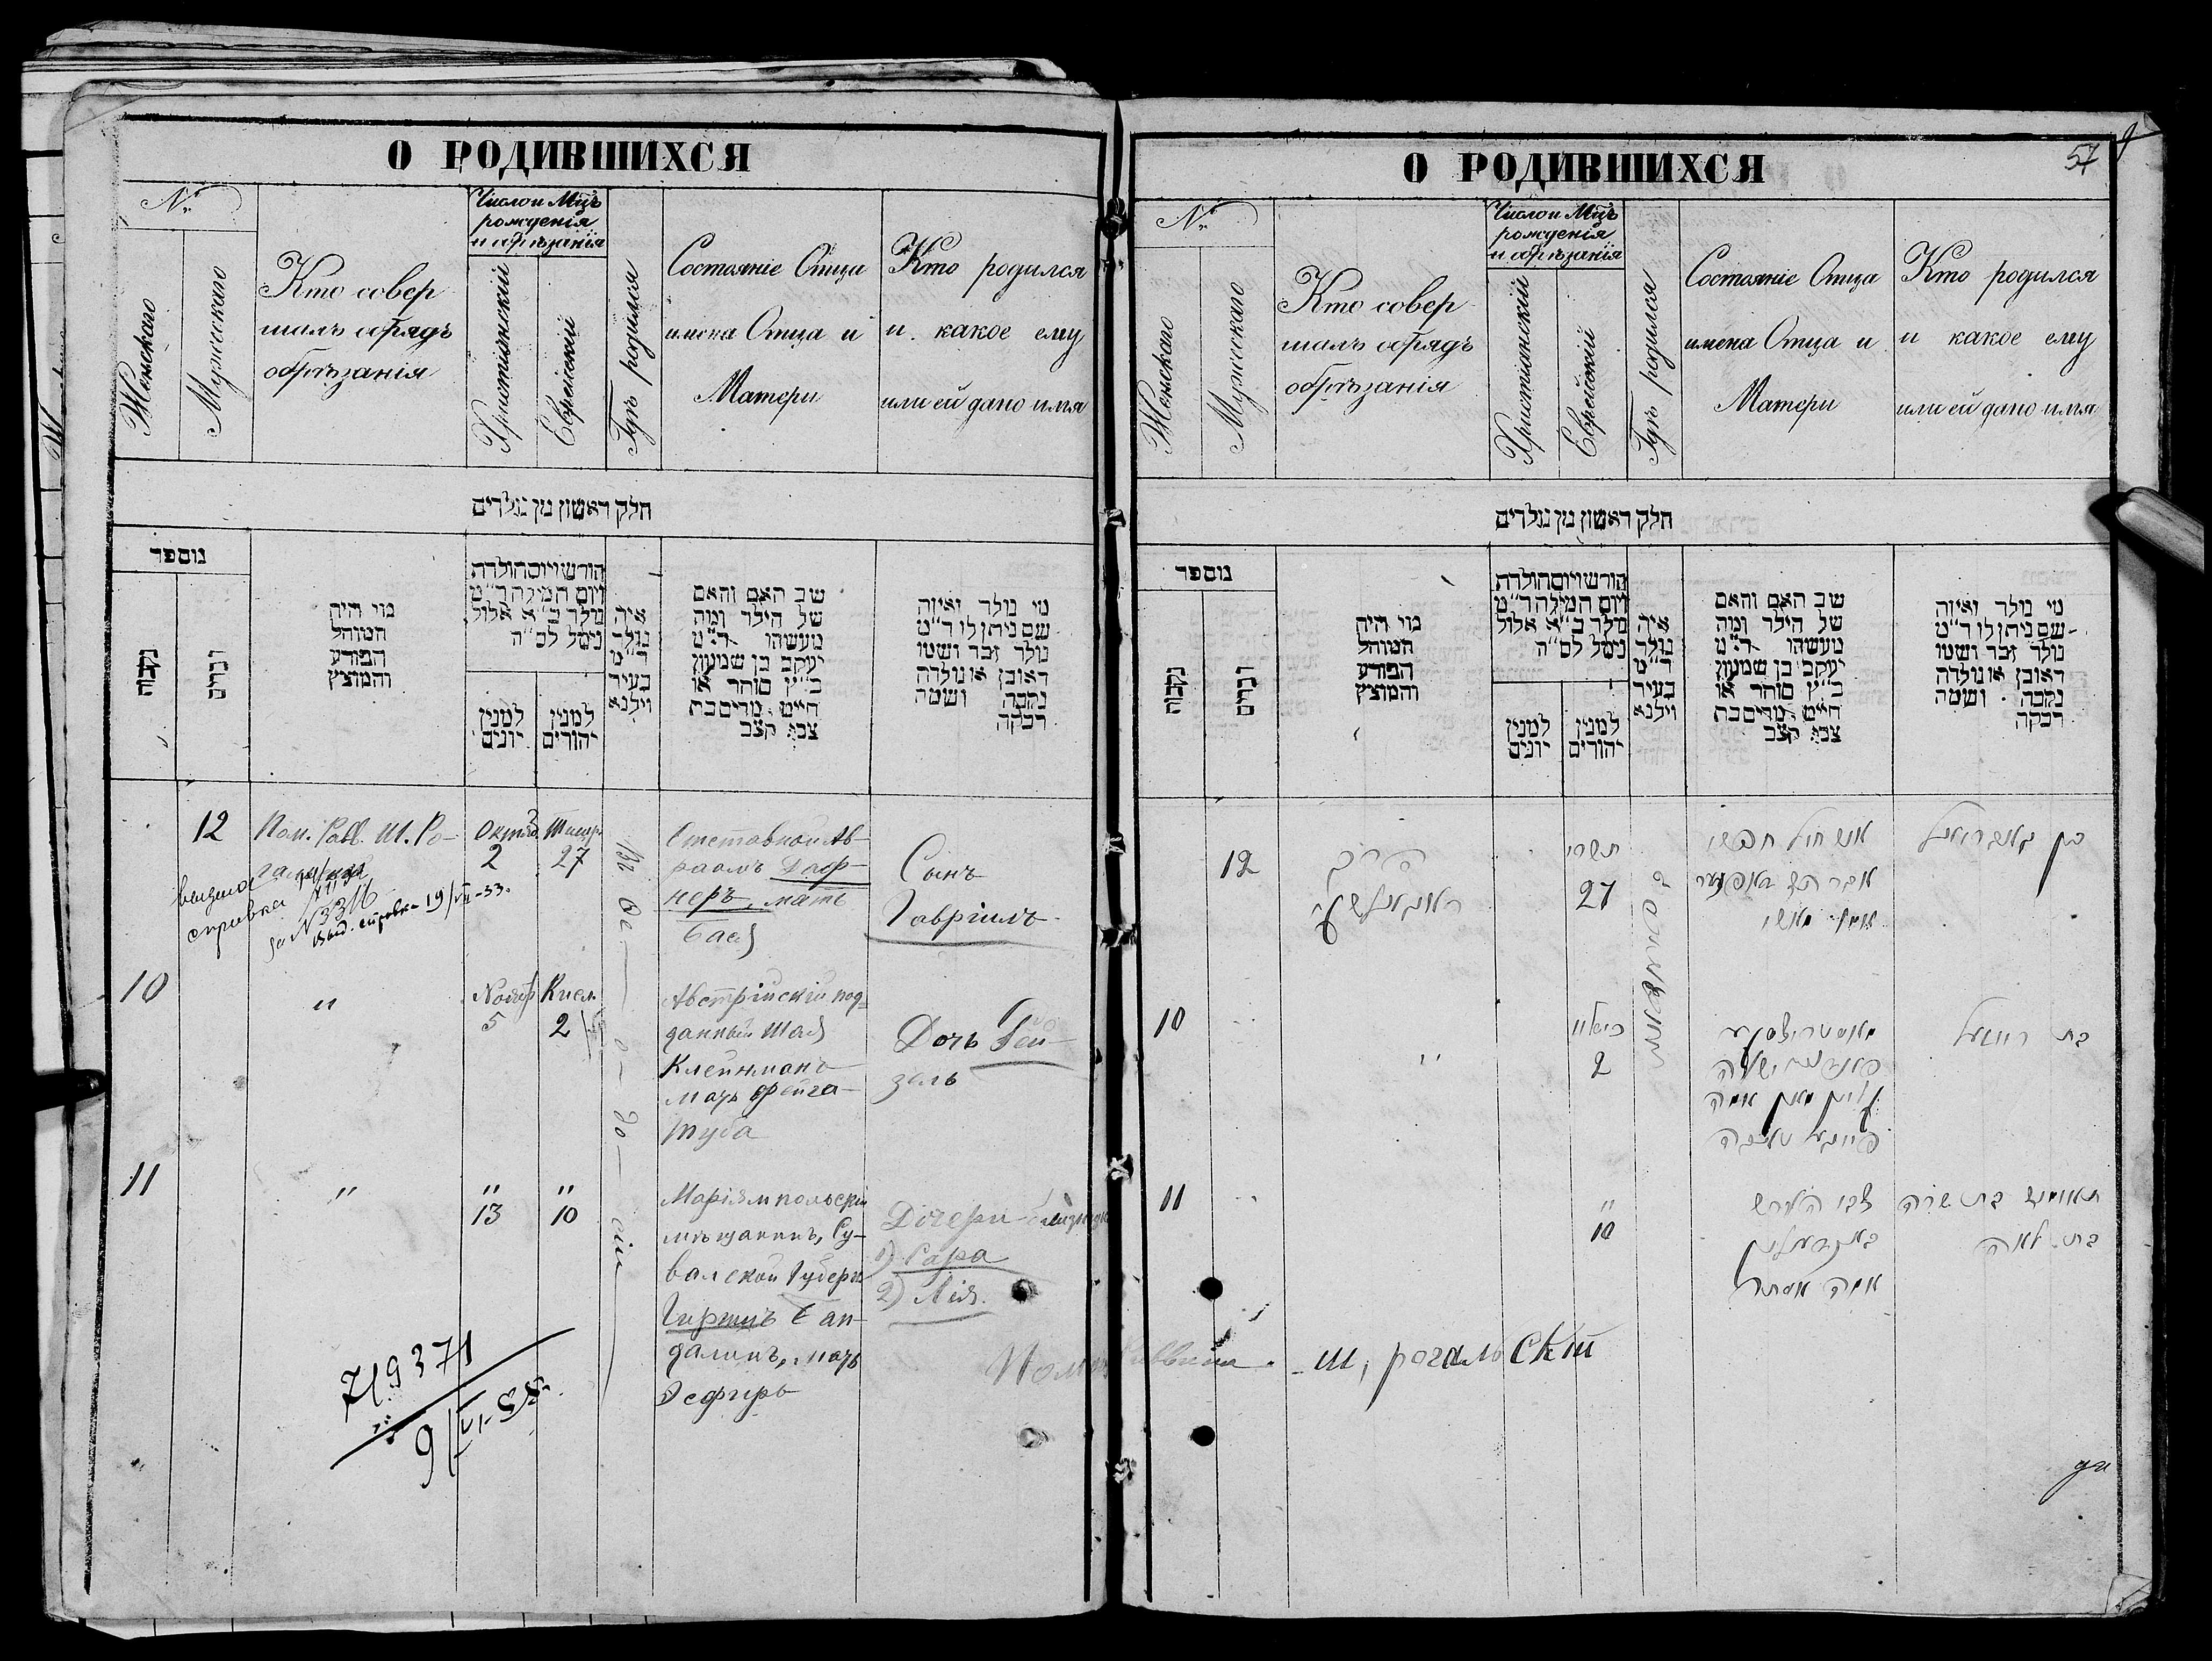 О РОДИВШИХСЯ
№
Женскаго
Мужескаго
Кто совер
шалъ обрядъ
обрѣзанія
Число и Мцъ
рожденія
и обрѣзанія
Христіянскій
Еврейскій
Гдѣ родился
Состояніе Отца
имена Отца и
Матери
Кто родился
и какое ему
или ей дано имя
חלק ראשון מן נולדים
מספר
נקבות
זכרים
מי היה
המוהל
הפורע
והמוצץ
חודש ויום הולדת
ויום המילה ד״מ
נולד ב״א אלול
נימל לס״ה
למנין
יונים
למנין
יהודים
איה
נולד
ד״מ
בעיר
ווילנא
שב האם והאם
של הילד ומה
מעשהו ד״מ
יעקב בן שמעון
כ״ץ סוחר או
חייט מרים בת
צבי קצב
מי נולד ואיזה
שם ניתן לו ד״מ
נולד זכר ושמו
ראובן או נולדה
נקבה ושמה
רבקה
12
Пом. Равв. Ш. Ро-
гальскій
Октяб.
2
Тишр.
27
Отставной Ав-
раамъ Даф-
неръ, мать
Бася
Сынъ
Гавріилъ
справка
Выд. справка 19/VII-33.
10
"
Ноябр
5
Кисл.
2
Австрійскій под-
данный Шая
Клейнманъ
мать Фейга
Туба
Дочь Рей-
зель
11
"
"
13
"
10
Маріямпольскій
мѣщанинъ, Су-
валской Губерн
Гиршъ Бан-
далинъ, мать
Эсфирь
Дочери близнецы
1) Сара
2) Лія.
719371
9/VI-33.
О РОДИВШИХСЯ
57
№
Женскаго
Мужескаго
Кто совер
шалъ обрядъ
обрѣзанія
Число и Мцъ
рожденія
и обрѣзанія
Христіянскій
Еврейскій
Гдѣ родился
Состояніе Отца
имена Отца и
Матери
Кто родился
и какое ему
или ей дано имя
חלק ראשון מן נולדים
מספר
נקבות
זכרים
מי היה
המוהל
הפורע
והמוצץ
חודש ויום הולדת
ויום המילה ד״מ
נולד ב״א אלול
נימל לס״ה
למנין
יונים
למנין
יהודים
איה
נולד
ד״מ
בעיר
ווילנא
שב האם והאם
של הילד ומה
מעשהו ד״מ
יעקב בן שמעון
כ״ץ סוחר או
חייט מרים בת
צבי קצב
מי נולד ואיזה
שם ניתן לו ד״מ
נולד זכר ושמו
ראובן או נולדה
נקבה ושמה
רבקה
12
הרב
ראגאלסקי
תשרי
27
איש חיל חפשי
אברהם דאפנער
אמו באשי
בן גאבריאל
10
"
כיסליו
2
קליין מאן אמה
פייגע טובה
בת רייזעל
11
"
10
צבי הירש
אמה אסתר
תאומים בת שרה
בת לאה
Помощ Раввина Ш, рогальскій